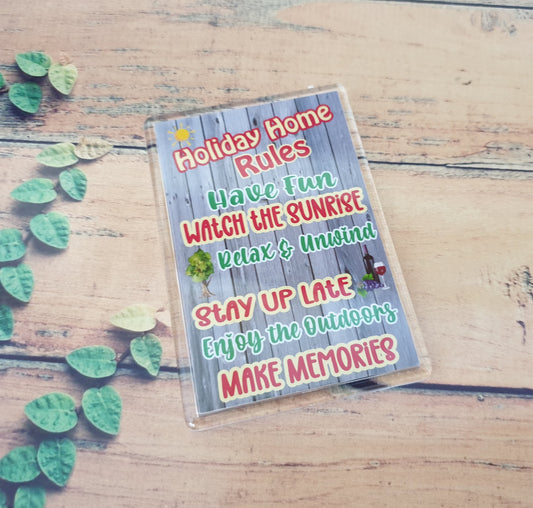 Holiday Home
Rules
Have Fun
WATCH THE SUNRISE
Relax & Unwind
STAY UP LATE
Enjoy the Outdoors
MAKE MEMORIES